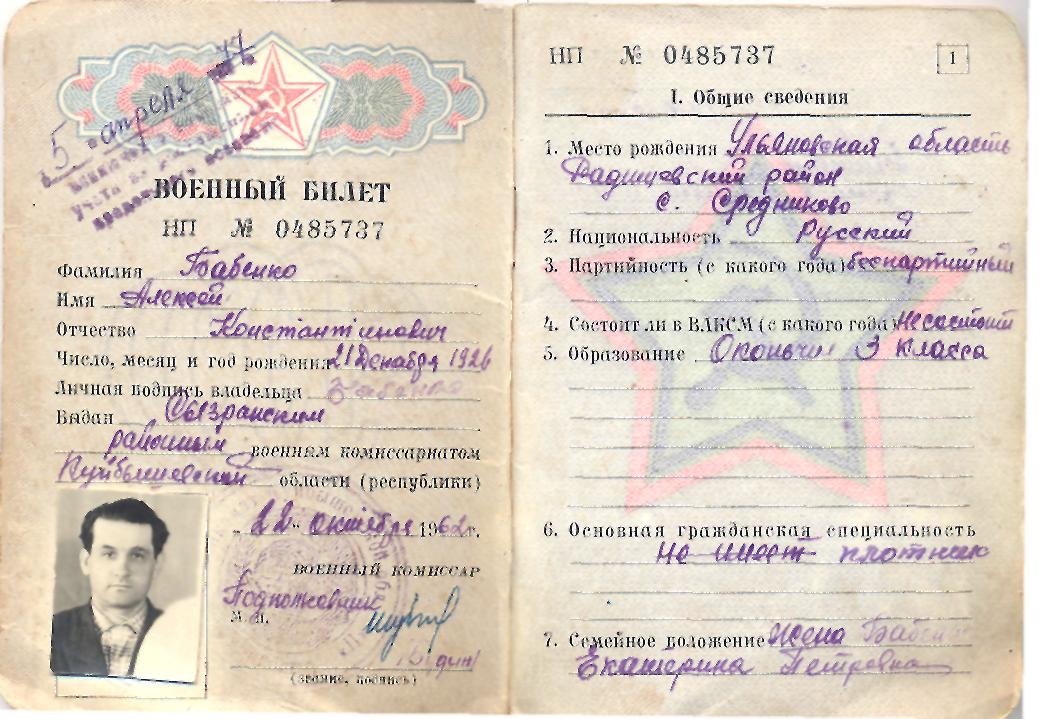 5 апреля 77
ВОЕННЫЙ БИЛЕТ
НП № 0485737
Фамилия Бабенко
Имя Алексей
Отчество Константинович
Число, месяц и год рождения 21 Декабря 1926
Личная подпись владельца
Выдан Сызранским
районным военным комиссариатом
Куйбышевской области (республики)
„22" октября 1962г.
ВОЕННЫЙ КОМИССАР
Подполковник
М. П.
(звание, подпись)
НП № 0485737
1
I. Общие сведения
1. Место рождения Ульяновская область
Радищевский район
с. Средниково
2. Национальность Русский
3. Партийность (с какого года) беспартийный
4. Состоит ли в ВЛКСМ (с какого года) Не состоит
5. Образование Окончил 3 класса
6. Основная гражданская специальность
не имеет плотник
7. Семейное положение Жена
Екатерина Петровна